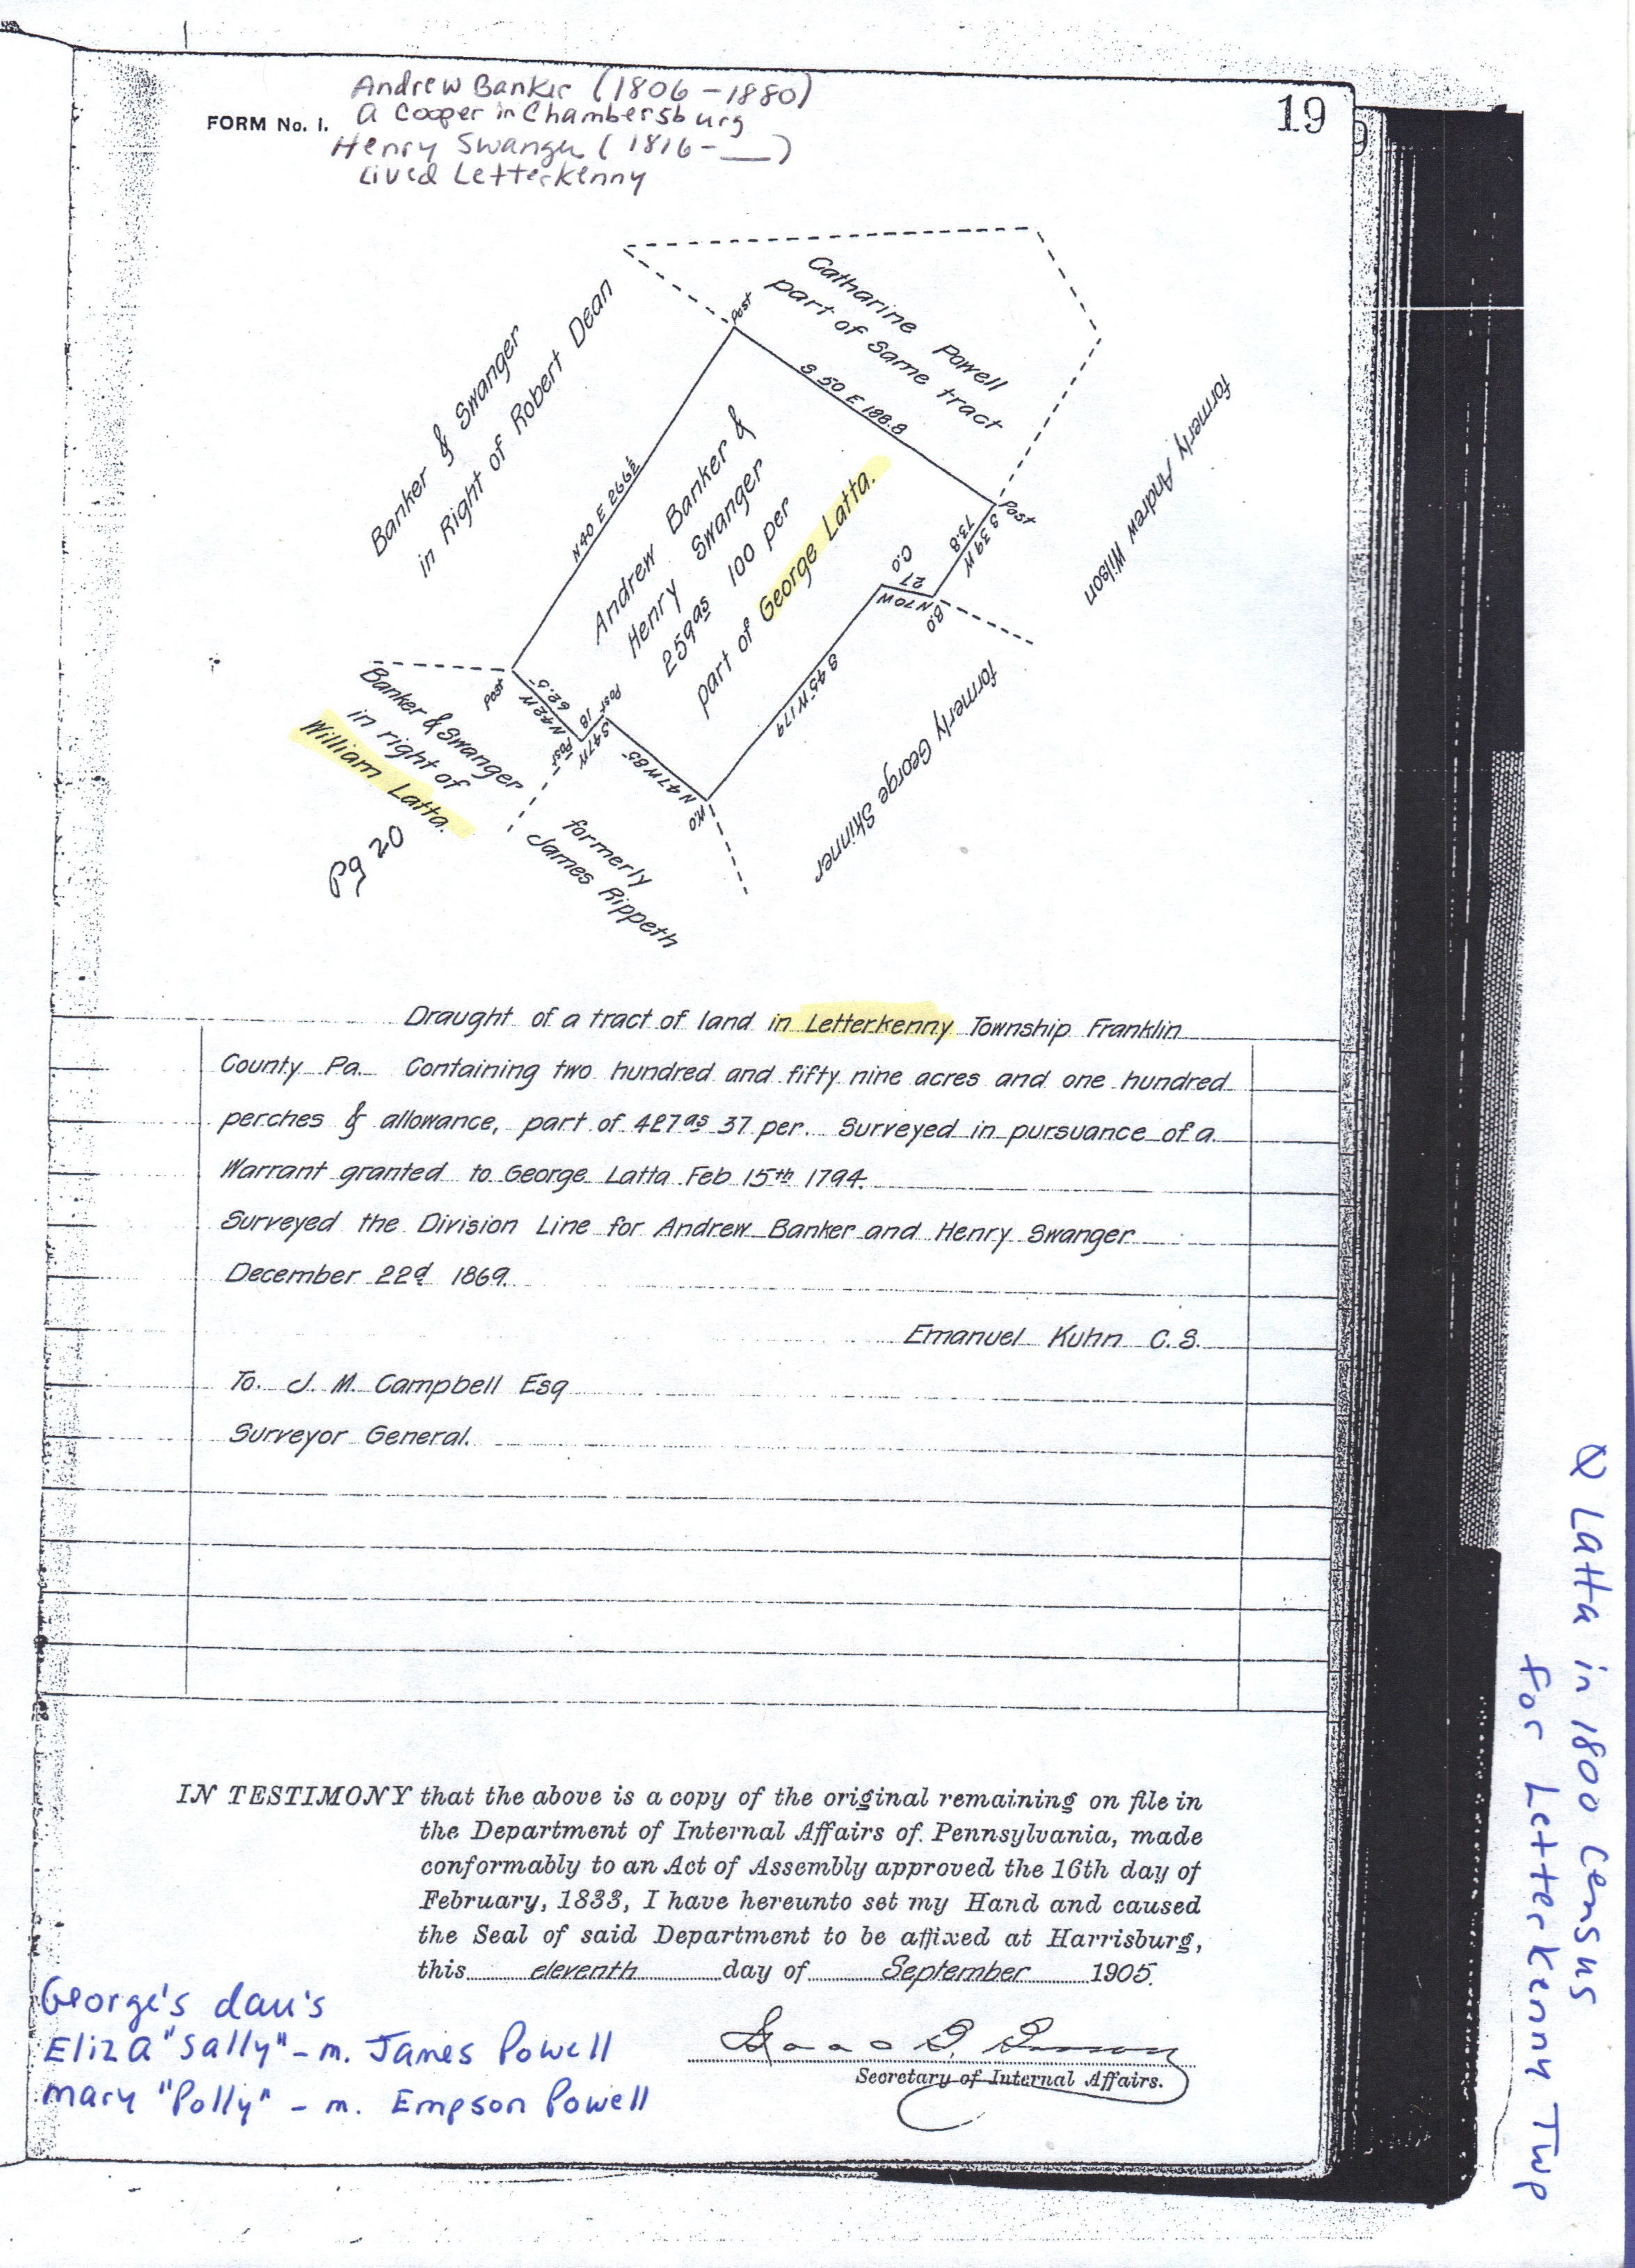 Andrew Banker (1806-1880)
19
FORM No. 1.
A Cooper in Chambersburg
Henry Swanger (1816-__)
Lived Letterkenny
Catharine Powell
part of same tract
Banker & Swanger
in Right of Robert Dean
Post
S 50 E 188.8
N40 E 266½
formerly Andrew Wilson
Andrew Banker &
Henry Swanger
259as 100 per
part of George Latta.
Post
S 39 W
73.8
C.O
27
N70W
B.O
S 45 W 179
formerly George Skinner
Post
N42W
62.5
Post
S47W
18
Post
N47W85
W.O
Banker & Swanger
in right of
William Latta.
Pg 20
formerly
James Rippeth
Draught of a tract of land in Letterkenny Township Franklin
County Pa. Containing two hundred and fifty nine acres and one hundred
perches & allowance, part of 427as 37 per. Surveyed in pursuance of a
Warrant granted to George Latta Feb 15th 1794.
Surveyed the Division Line for Andrew Banker and Henry Swanger
December 22d 1869.
Emanuel Kuhn C.S.
To. J. M. Campbell Esq
Surveyor General.
IN TESTIMONY that the above is a copy of the original remaining on file in
the Department of Internal Affairs of Pennsylvania, made
conformably to an Act of Assembly approved the 16th day of
February, 1833, I have hereunto set my Hand and caused
the Seal of said Department to be affixed at Harrisburg,
this eleventh day of September 1905.
Secretary of Internal Affairs.
George's dau's
Eliza "Sally" - m. James Powell
Mary "Polly" - m. Empson Powell
Latta in 1800 census
for Letterkenny Twp